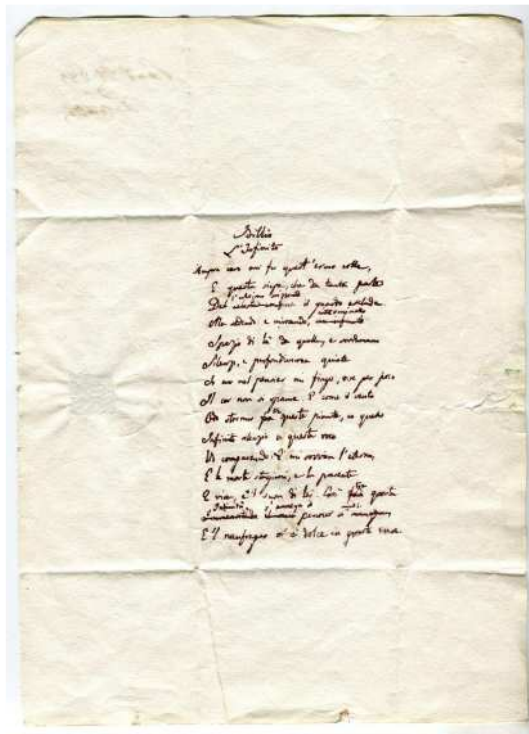 Idillio
L'Infinito
Sempre caro mi fu quest'ermo colle,
E questa siepe, che da tanta parte
Del celeste confine il guardo esclude
Ma sedendo e mirando,
Spazio di là da quella, e sovrumani
Silenzi, e profondissima quiete
Io nel pensier mi fingo, ove per poco
Il cor non si spaura. E come il vento
Odo stormir fra queste piante, io quello
Infinito silenzio a questa voce
Vo comparando: E mi sovvien l'eterno,
E le morte stagioni, e la presente
E viva, e 'l suon di lei. Così questa
Infinità
pensier
E 'l naufragar m'è dolce in questo mare